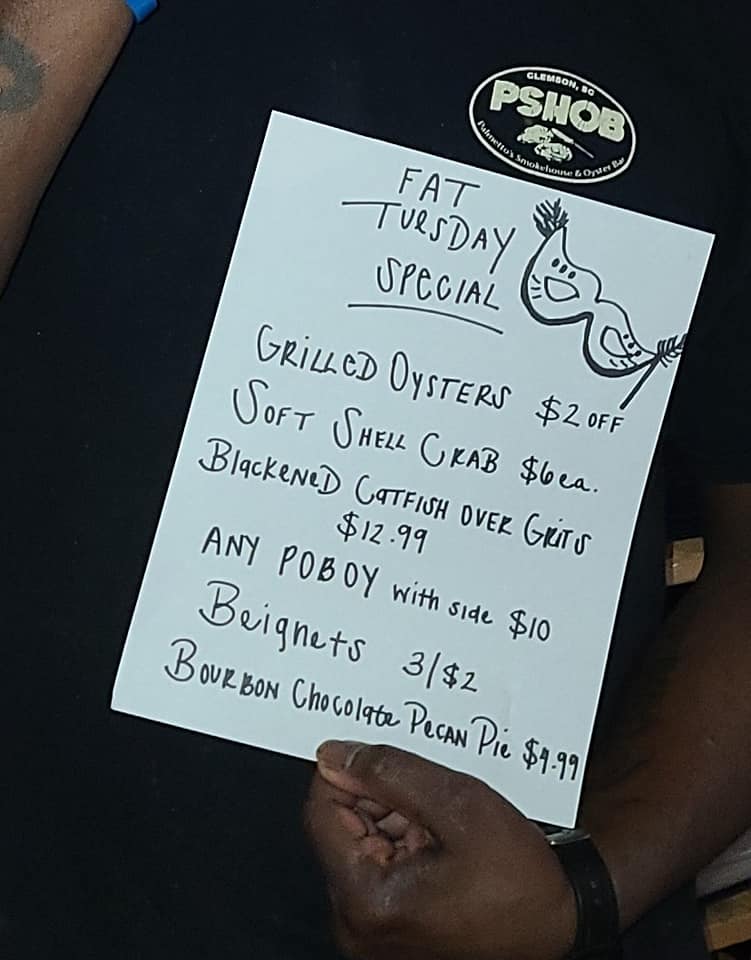 CLEMSON, SC
PSHOB
Palmetto's Smokehouse & Oyster Bar
FAT
TUESDAY
SPECIAL
GRILLED OYSTERS $2 OFF
SOFT SHELL CRAB $6 ea.
BlackeNeD CATFISH OVER GRITS
$12.99
ANY POBOY with side $10
Beignets 3/$2
BOURBON Chocolate PECAN Pie $4.99